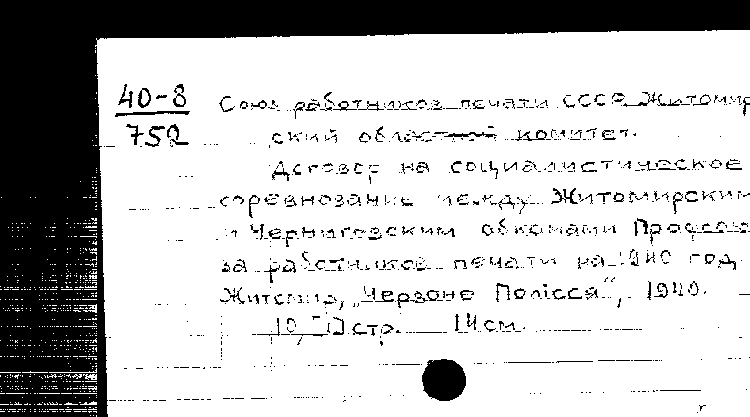 40-8
752
Союз работников печати СССР Житомир
ский областной комитет.
Договор на социалистическое
соревнование между Житомирским
и Черниговским обкомами Профсою
за работников печати на 1940 год.
Житомир, „Червоне Полісся“, 1940.
10, [1] стр. 14 см.